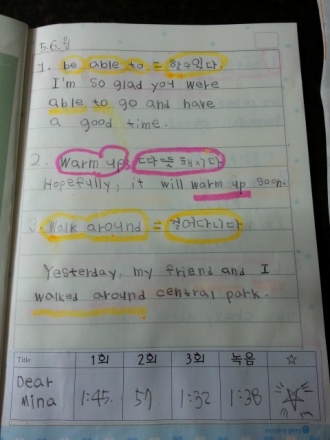 5.6.월
1. be able to = 할수있다.
I'm so glad you were
able to go and have
a good time.
2. Warm up = 따뜻해지다
Hopefully, it will warm up soon.
3. Walk around = 걸어다니다
Yesterday, my friend and I
walked around central park.
Title 1회 2회 3회 녹음 ☆
Dear Mina 1:45 57 1:32 1:38